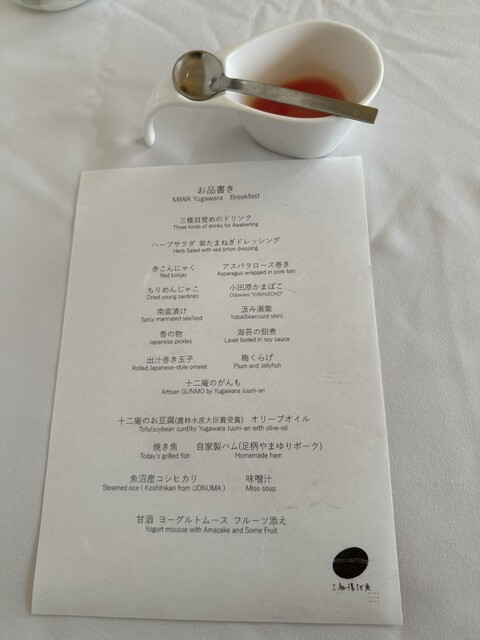 お品書き
MIWA Yugawara Breakfast
三種目覚めのドリンク
Three kinds of drinks for Awakening
ハーブサラダ 紫たまねぎドレッシング
Herb Salad with red onion dressing
赤こんにゃく アスパラロース巻き
Red konjac Asparagus wrapped in pork loin
ちりめんじゃこ 小田原かまぼこ
Dried young sardines Odawara "KAMABOKO"
南蛮漬け 汲み湯葉
Spicy marinated seafood Yuba(beancurd skin)
香の物 海苔の佃煮
Japanese pickles Laver boiled in soy sauce
出汁巻き玉子 梅くらげ
Rolled Japanese-style omelet Plum and Jellyfish
十二庵のがんも
Artisan GUNMO by Yugawara Juuni-an
十二庵のお豆腐(農林水産大臣賞受賞) オリーブオイル
Tofu(soybean curd)by Yugawara Juuni-an with olive-oil
焼き魚 自家製ハム(足柄やまゆりポーク)
Today's grilled fish Homemade ham
魚沼産コシヒカリ 味噌汁
Steamed rice ( Koshihikari from UONUMA ) Miso soup
甘酒 ヨーグルトムース フルーツ添え
Yogurt mousse with Amazake and Some Fruit